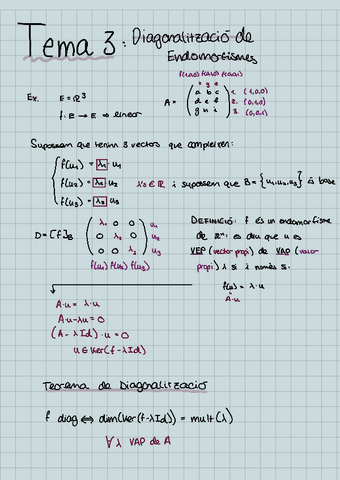 Tema 3: Diagonalització de
Endomorfismes
f(1,0,0) f(0,1,0) f(0,0,1)
x y z
Ex. E = ℝ³
f: E → E → linear
A = ( a b c ) 1. (1,0,0)
( d e f ) 2. (0,1,0)
( g h i ) 3. (0,0,1)
Suposem que tenim 3 vectors que compleixen:
f(u₁) = λ₁ · u₁
f(u₂) = λ₂ · u₂ λ's ∈ ℝ i suposem que B = {u₁,u₂,u₃} és base
f(u₃) = λ₃ · u₃
D = [f]B
( λ₁ 0 0 ) u₁
( 0 λ₂ 0 ) u₂
( 0 0 λ₃ ) u₃
f(u₁) f(u₂) f(u₃)
DEFINICIÓ: f és un endomorfisme
de ℝⁿ: es diu que u és
VEP (vector propi) de VAP (valor
propi) λ si i només si:
f(u) = λ·u
A·u
A·u = λ·u
A·u - λu = 0
(A - λId) · u = 0
u ∈ Ker(f - λId)
Teorema de Diagonalització
f diag ⟺ dim(Ker(f - λId)) = mult(λ)
∀ λ VAP de A